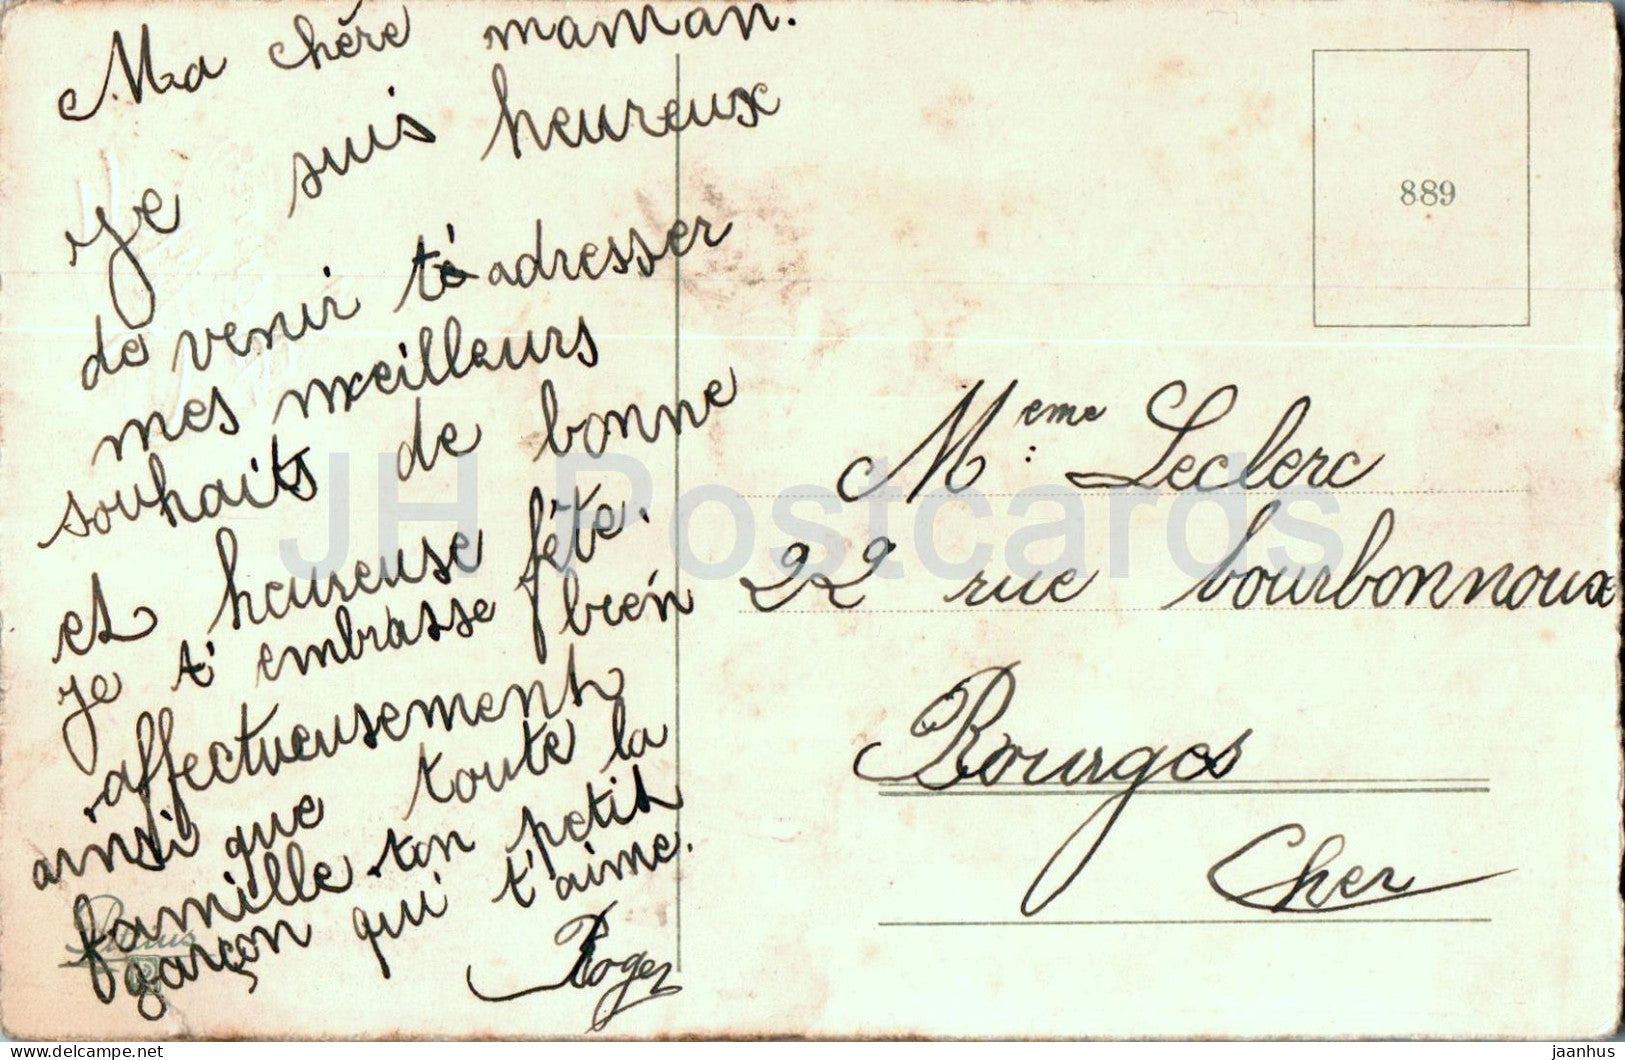 Ma chère maman.
Je suis heureux
de venir té adresser
mes meilleurs
souhaits de bonne
et heureuse fête.
je t'embrasse bien
affectueusement
ainsi que toute la
famille ton petit
garçon qui t'aime.
Roger
889
Meme Leclerc
22 rue bourbonnoux
Bourges
Cher
JH Postcards
delcampe.net
jaanhus